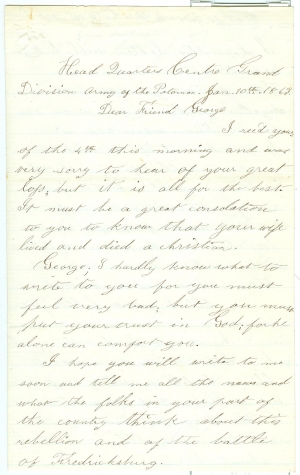 Head Quarters Centre Grand
Division Army of the Potomac Jan. 10th 1863
Dear Friend George
I recd yours
of the 4th this morning and was
very sorry to hear of your great
loss, but it is all for the best.
It must be a great consolation
to you to know that your wife
lived and died a christian.
George, I hardly know what to
write to you for you must
feel very bad; but you must
put your trust in God; for he
alone can comfort you.
I hope you will write to me
soon and tell me all the news and
what the folks in your part of
the country think about this
rebellion and of the battle
of Fredricksburg.